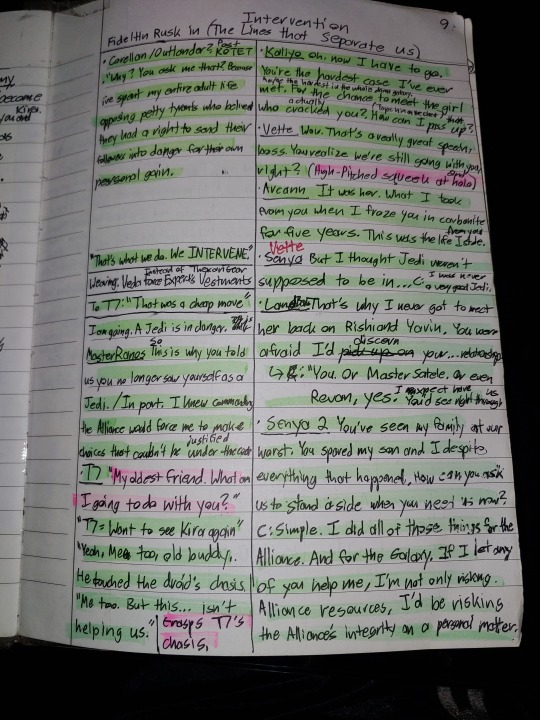 my
become
Kira.
9.
Intervention
Fidelltin Rusk in (The Lines that Separate us)
Post
• Corellan/Outlander? KOTET
"Why? You ask me that? Because
i've spent my entire adult life
opposing petty tyrants who believed
they had a right to send their
followers into danger for their own
personal gain.
"That's what we do. We INTERVENE."
Instead of
Wearing: Veda Force Expert's Vestments
To T7: "That was a cheap move"
I am going. A Jedi is in danger.
so
Master Ranos This is why you told
us you no longer saw yourself as a
Jedi. / In part. I knew commanding
the Alliance would force me to make
justified
choices that couldn't be under the
T7 "My oldest friend. What am
I going to do with you?"
"T7 = Want to see Kira again"
"Yeah, Me too, old buddy.
He touched the droid's chasis
"Me too. But this... isn't
helping us."
Grasps T7's
chasis.
• Kaliyo oh, now I have to go.
You're the hardest case I've ever
met. For the chance to meet the girl
actually
who cracked you? How can I pass up?
• Vette Wow. That's a really great speech,
boss. You realize we're still going with you,
right? (High-Pitched squeek at holo)
• Arcann It was her. What I took
from you when I froze you in carbonite
from you
for five years. This was the life I stole.
Vette
• Senya But I thought Jedi weren't
supposed to be in... C: I was never
a very good Jedi.
• Lana That's why I never got to meet
her back on Rishi and Yavin. You were
discern
afraid I'd pick up on your... relationship
↳ C: "You. Or Master Satele. Or even
Revan, yes. I expect
You'd see right through
us
• Senya 2 You've seen my family at our
worst. You spared my son and I despite
everything that happened. How can you ask
us to stand aside when you need us now?
C: Simple. I did all of those things for the
Alliance. And for the Galaxy. If I let any
of you help me, I'm not only risking
Alliance resources, I'd be risking
the Alliance's integrity on a personal matter.